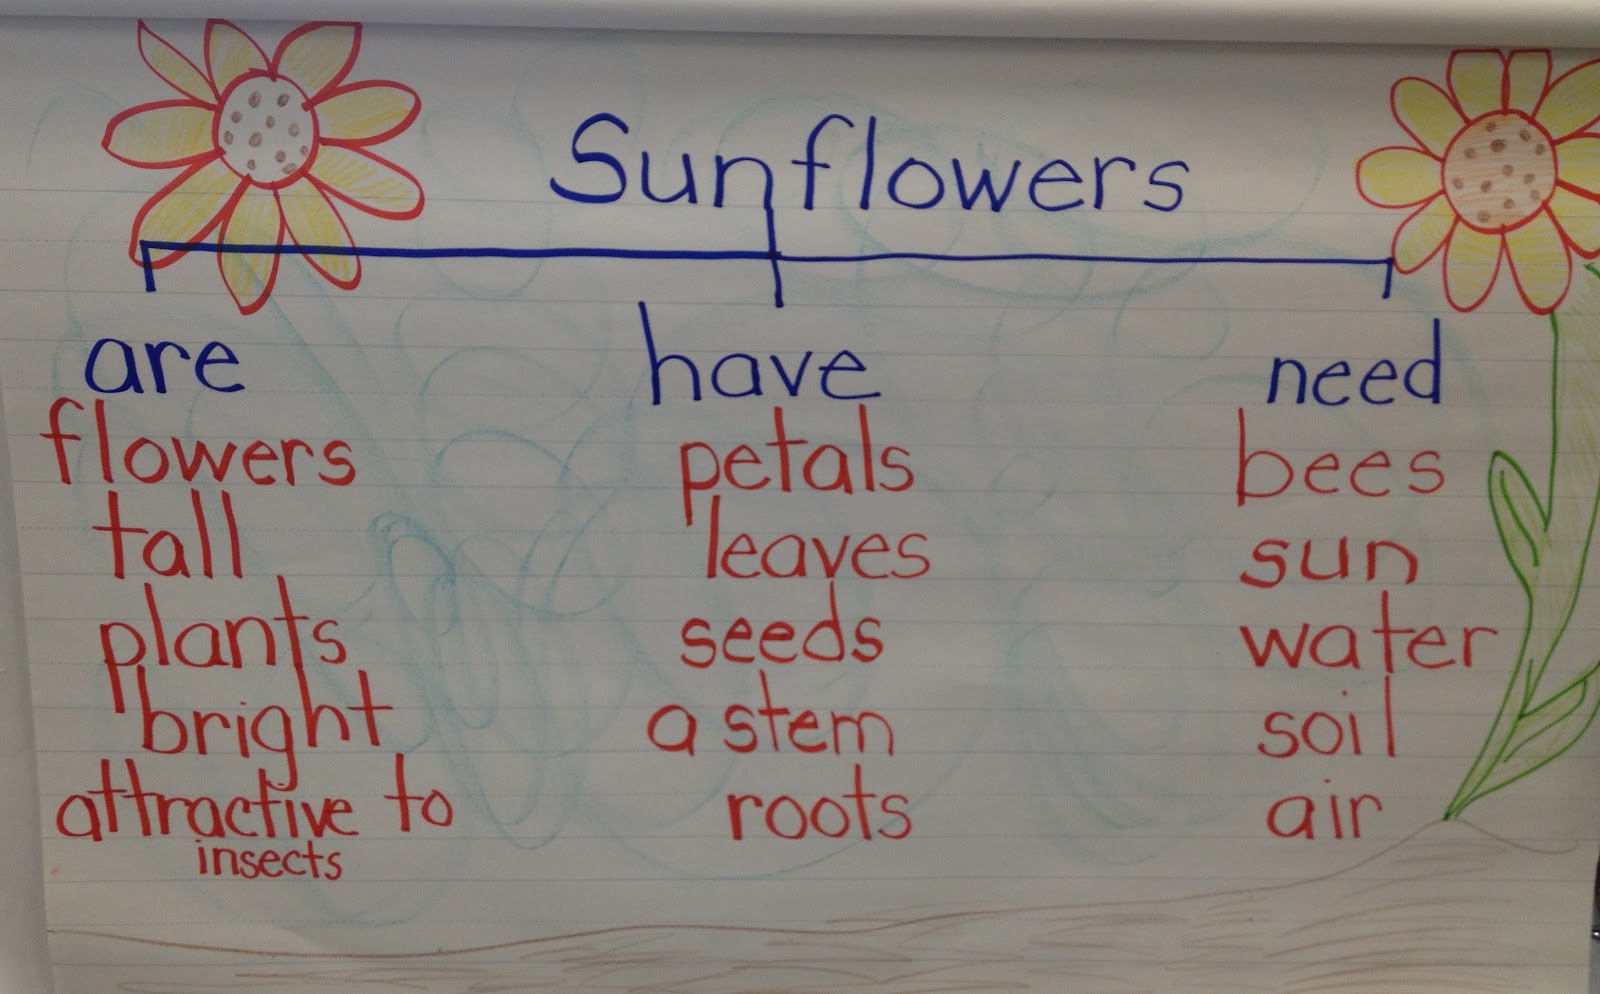 Sunflowers
are
flowers
tall
plants
bright
attractive to
insects
have
petals
leaves
seeds
a stem
roots
need
bees
sun
water
soil
air